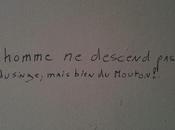 homme ne descend pas
du singe, mais bien du Mouton!